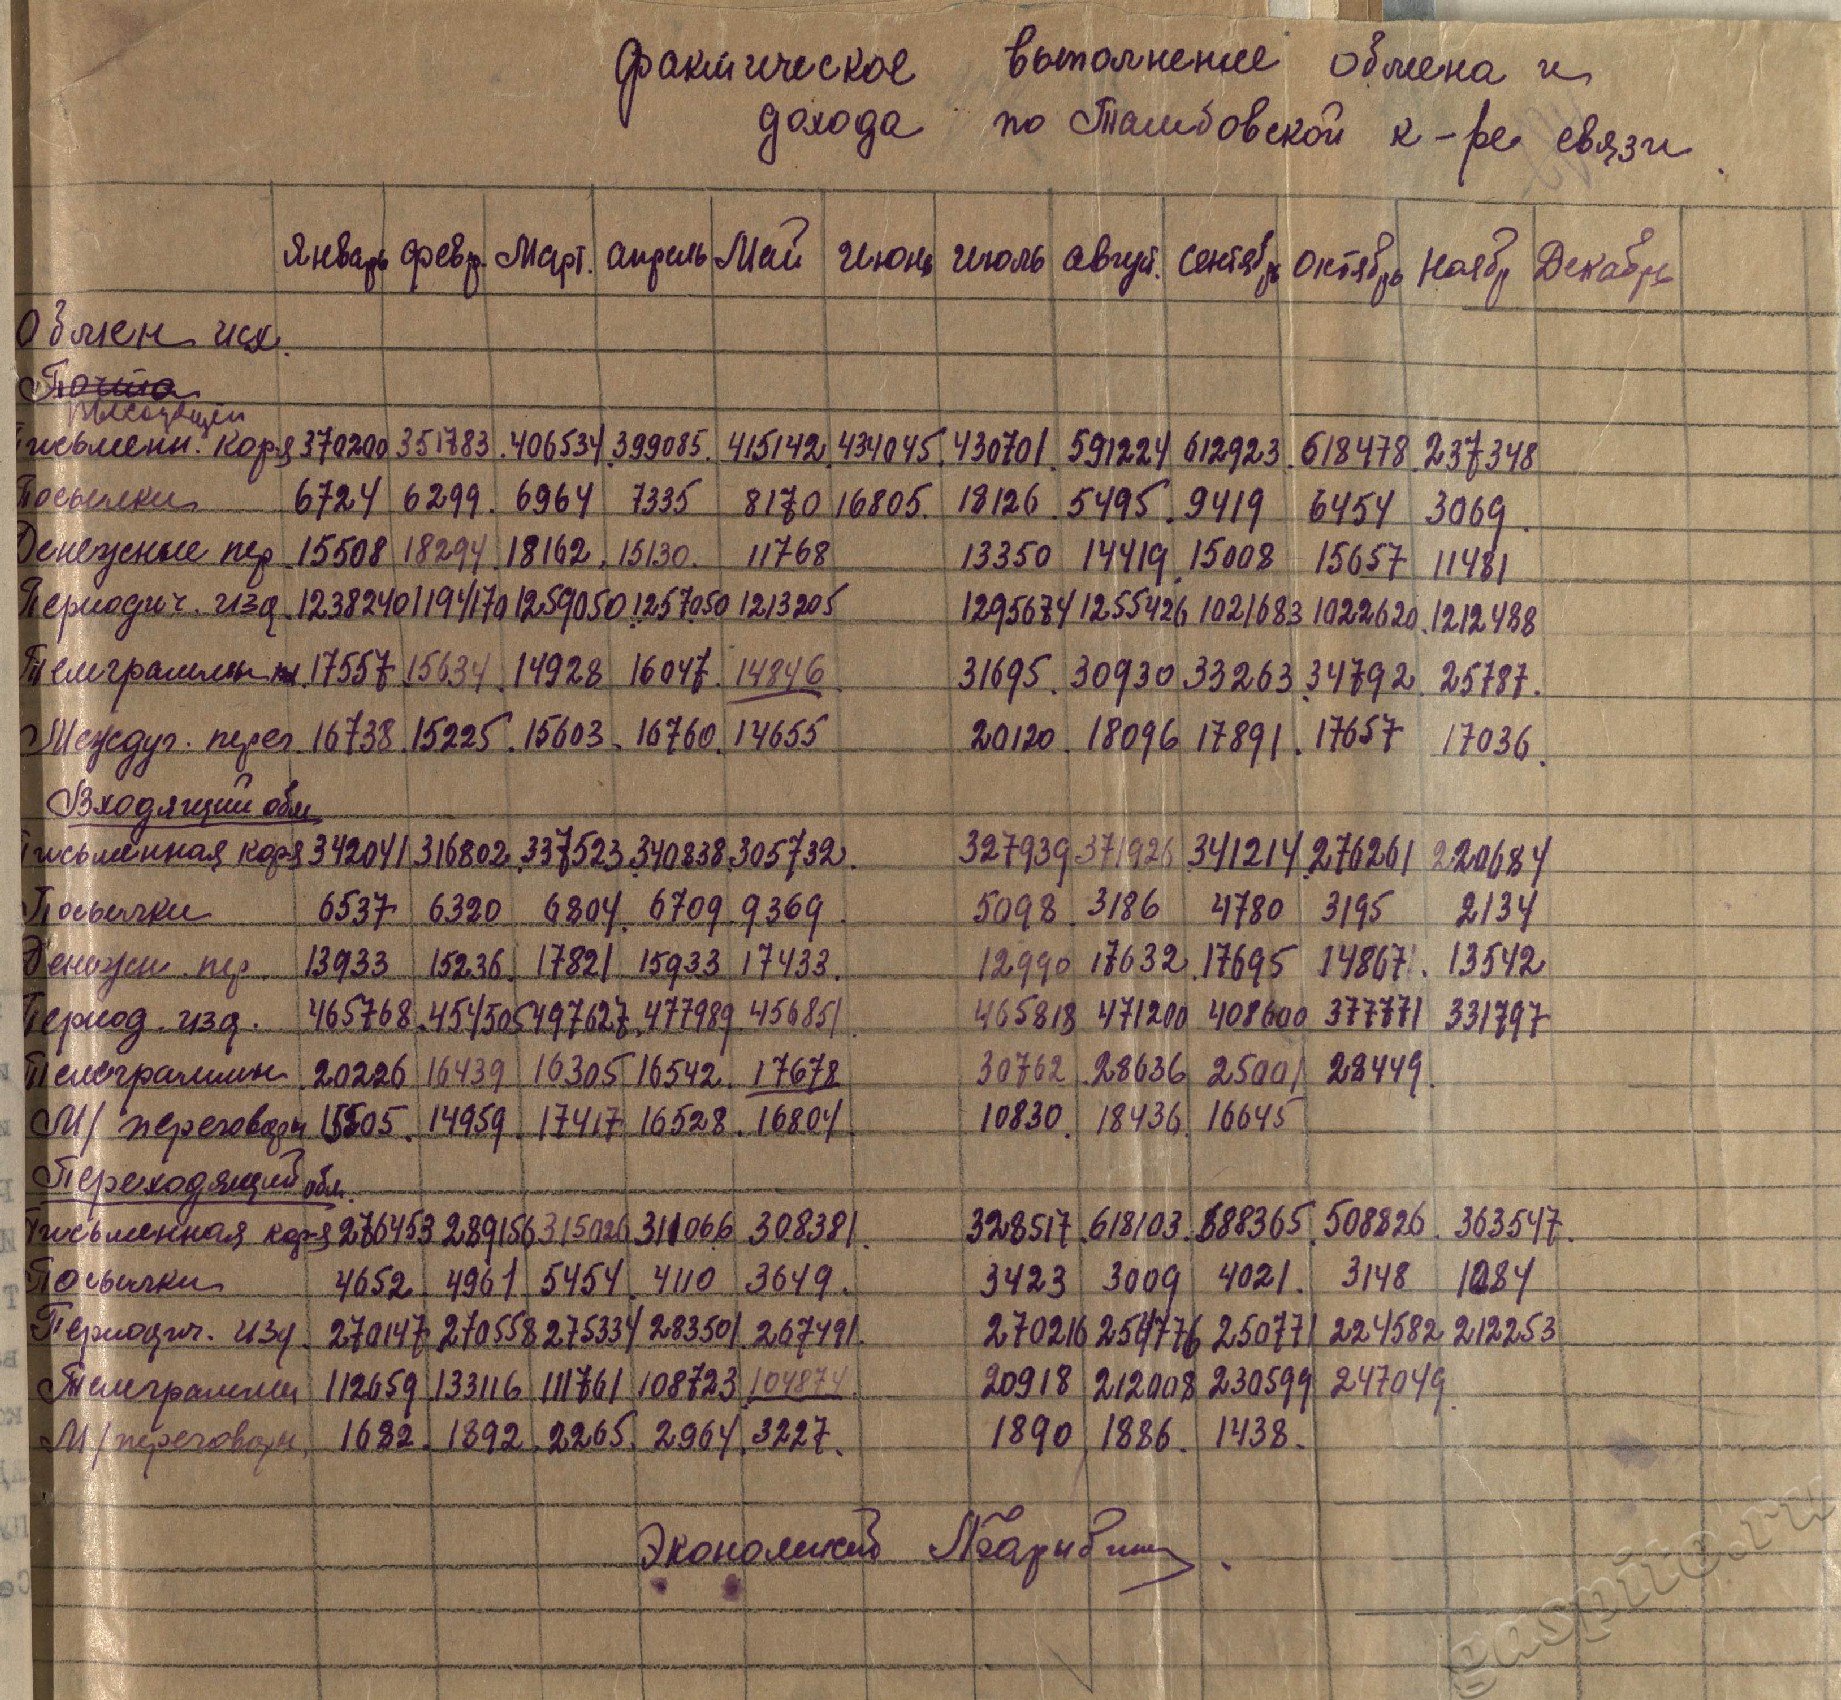 Фактическое выполнение обмена и
дохода по Тамбовской к-ре связи.
Январь Февр. Март. апрель Май Июнь Июль Август. Сентябрь Октябрь Ноябр Декабрь
Обмен исх.
Почта
Письменн. кор. 370200 351783. 406534. 399085. 415142. 434045. 430701. 591224 612923. 618478. 237348
Посылки 6724 6299. 6964 7335 8170 16805. 18126. 5495. 9419 6454 3069.
Денежные пер. 15508 18294 18162. 15130. 11768 13350 14419. 15008 15657 11481
Периодич. изд. 1238240 1194170 1259050 1257050 1213205 1295674 1255426 1021683 1022620. 1212488
Телеграммы 17557. 15634. 14928 16047. 14846. 31695. 30930. 33263. 34792. 25787.
Междуг. перег. 16738. 15225. 15603. 16760. 14655 20120. 18096 17891. 17657 17036.
Входящий обм.
Письменная кор. 342041 316802. 337523. 340838. 305732. 327939 371926. 341214. 276261 220684
Посылки 6537 6320 6804. 6709 9369. 5098. 3186 4780 3195 2134
Денежн. пер. 13933 15236. 17821 15933 17433. 12990 17632. 17695 14867. 13542
Период. изд. 465768. 454505 497627. 477989. 456851. 465818 471200 408600 377771 331797
Телеграммы 20226 16439 16305 16542. 17678 30762. 28636 25001 28449.
М/переговоры 15505. 14959. 17417 16528. 16804. 10830. 18436. 16645
Переходящий обм.
Письменная кор. 276453 289156 315026 311066 308381. 328517. 618103. 588365. 508826. 363547.
Посылки 4652. 4961 5454. 4110 3649. 3423 3009 4021. 3148 1084
Периодич. изд. 270147 270558 275334 283501 267491. 270216 254776 250771 224582 212253
Телеграммы 112659. 133116 111761 108723. 104874. 20918 212008 230599 247049.
М/переговоры. 1682. 1892. 2265. 2964. 3227. 1890 1886. 1438.
Экономист
gaspito.ru